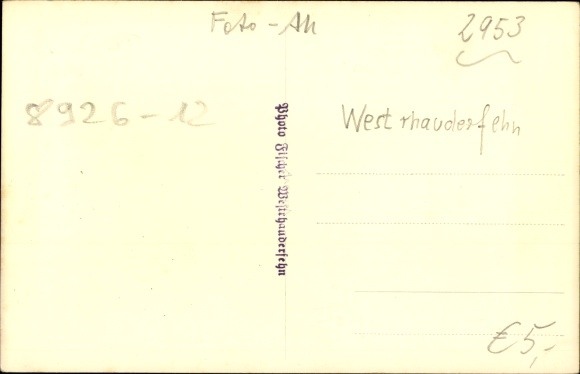 Foto - AK
2953
8926-12
Photo Fischer Westrhauderfehn
West rhauderfehn
€5,-